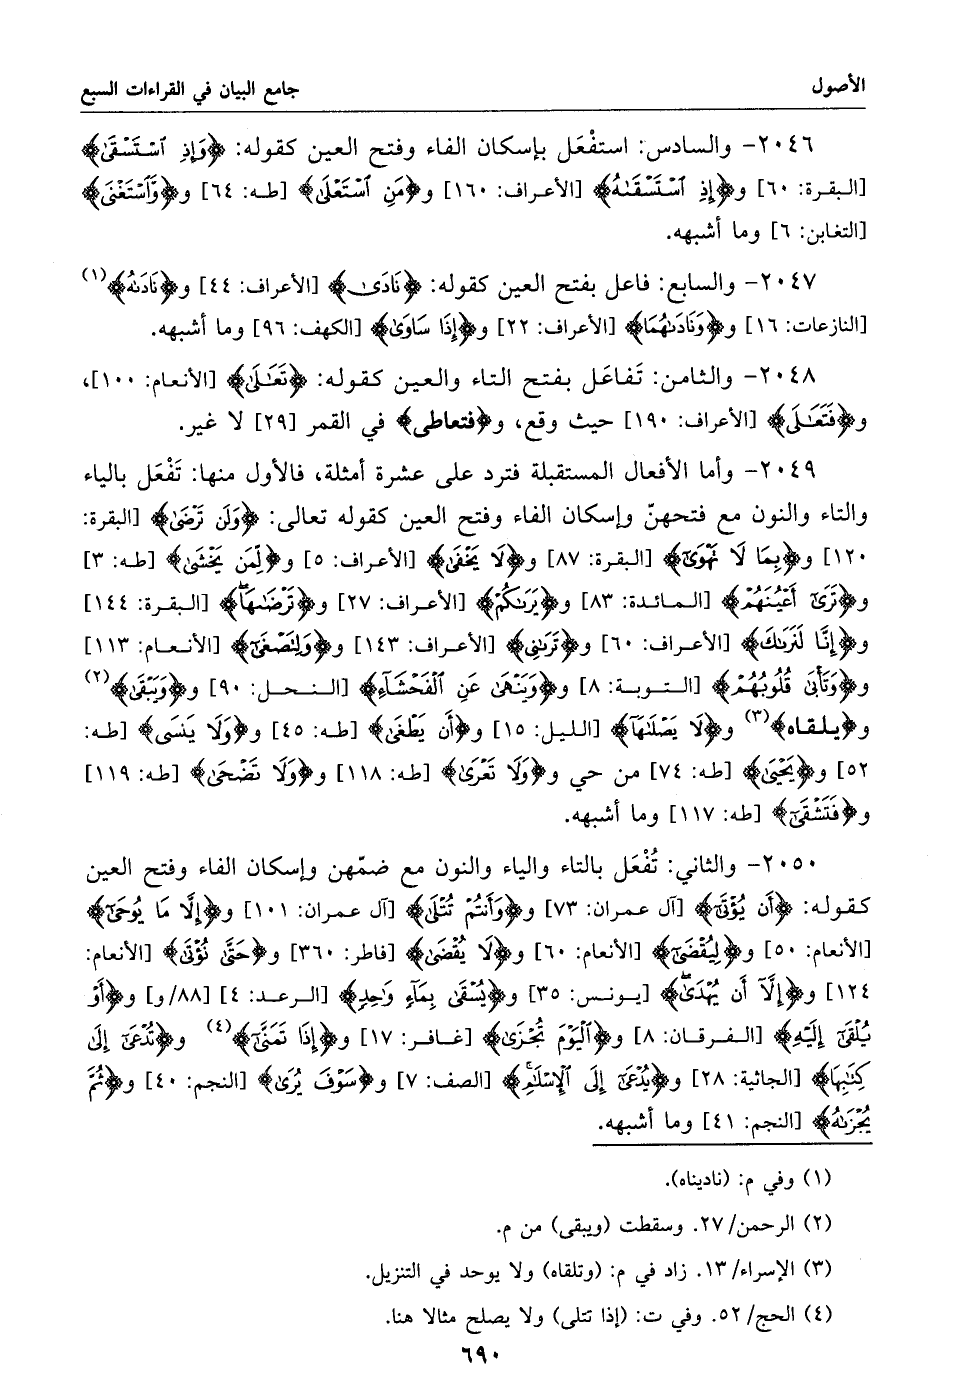 الأصول
جامع البيان في القراءات السبع
٢٠٤٦- والسادس: استفْعَل بإسكان الفاء وفتح العين كقوله: ﴿وَإِذِ ٱسْتَسْقَىٰ﴾
[البقرة: ٦٠] و﴿إِذِ ٱسْتَسْقَىٰهُ﴾ [الأعراف: ١٦٠] و﴿مَنِ ٱسْتَعْلَىٰ﴾ [طه: ٦٤] و﴿وَّٱسْتَغْنَى﴾
[التغابن: ٦] وما أشبهه.
٢٠٤٧- والسابع: فاعل بفتح العين كقوله: ﴿نَادَىٰ﴾ [الأعراف: ٤٤] و﴿نَادَىٰهُ﴾(١)
[النازعات: ١٦] و﴿وَنَادَىٰهُمَا﴾ [الأعراف: ٢٢] و﴿إِذَا سَاوَىٰ﴾ [الكهف: ٩٦] وما أشبهه.
٢٠٤٨- والثامن: تَفاعَل بفتح التاء والعين كقوله: ﴿تَعَٰلَىٰ﴾ [الأنعام: ١٠٠]،
و﴿فَتَعَٰلَى﴾ [الأعراف: ١٩٠] حيث وقع، و﴿فتعاطى﴾ في القمر [٢٩] لا غير.
٢٠٤٩- وأما الأفعال المستقبلة فترد على عشرة أمثلة، فالأول منها: تَفْعَل بالياء
والتاء والنون مع فتحهنّ وإسكان الفاء وفتح العين كقوله تعالى: ﴿وَلَن تَرْضَىٰ﴾ [البقرة:
١٢٠] و﴿بِمَا لَا تَهْوَىٰٓ﴾ [البقرة: ٨٧] و﴿لَا يَخْفَىٰ﴾ [الأعراف: ٥] و﴿لِّمَن يَخْشَىٰ﴾ [طه: ٣]
و﴿تَرَىٰٓ أَعْيُنَهُمْ﴾ [المائدة: ٨٣] و﴿يَرَىٰكُمْ﴾ [الأعراف: ٢٧] و﴿تَرْضَىٰهَا﴾ [البقرة: ١٤٤]
و﴿إِنَّا لَنَرَىٰكَ﴾ [الأعراف: ٦٠] و﴿تَرَىٰنِي﴾ [الأعراف: ١٤٣] و﴿وَلِتَصْغَىٰٓ﴾ [الأنعام: ١١٣]
و﴿وَتَأْبَىٰ قُلُوبُهُمْ﴾ [التوبة: ٨] و﴿وَيَنْهَىٰ عَنِ ٱلْفَحْشَآءِ﴾ [النحل: ٩٠] و﴿وَيَبْقَىٰ﴾(٢)
و﴿يلقاه﴾(٣) و﴿لَا يَصْلَىٰهَآ﴾ [الليل: ١٥] و﴿أَن يَطْغَىٰ﴾ [طه: ٤٥] و﴿وَلَا يَنسَى﴾ [طه:
٥٢] و﴿يَحْيَىٰ﴾ [طه: ٧٤] من حي و﴿وَلَا تَعْرَىٰ﴾ [طه: ١١٨] و﴿وَلَا تَضْحَىٰ﴾ [طه: ١١٩]
و﴿فَتَشْقَىٰٓ﴾ [طه: ١١٧] وما أشبهه.
٢٠٥٠- والثاني: تُفْعَل بالتاء والياء والنون مع ضمّهن وإسكان الفاء وفتح العين
كقوله: ﴿أَن يُؤْتَىٰٓ﴾ [آل عمران: ٧٣] و﴿وَأَنتُمْ تُتْلَىٰ﴾ [آل عمران: ١٠١] و﴿إِلَّا مَا يُوحَىٰٓ﴾
[الأنعام: ٥٠] و﴿لِيُقْضَىٰٓ﴾ [الأنعام: ٦٠] و﴿لَا يُقْضَىٰ﴾ [فاطر: ٣٦٠] و﴿حَتَّىٰ نُؤْتَىٰ﴾ [الأنعام:
١٢٤] و﴿إِلَّآ أَن يُهْدَىٰ﴾ [يونس: ٣٥] و﴿يُسْقَىٰ بِمَآءٍ وَٰحِدٍ﴾ [الرعد: ٤] [٨٨/و] و﴿أَوْ
يُلْقَىٰٓ إِلَيْهِ﴾ [الفرقان: ٨] و﴿ٱلْيَوْمَ تُجْزَىٰ﴾ [غافر: ١٧] و﴿إِذَا تَمَنَّىٰٓ﴾(٤) و﴿تُدْعَىٰٓ إِلَىٰ
كِتَٰبِهَا﴾ [الجاثية: ٢٨] و﴿يُدْعَىٰٓ إِلَى ٱلْإِسْلَٰمِ﴾ [الصف: ٧] و﴿سَوْفَ يُرَىٰ﴾ [النجم: ٤٠] و﴿ثُمَّ
يُجْزَىٰهُ﴾ [النجم: ٤١] وما أشبهه.
(١) وفي م: (ناديناه).
(٢) الرحمن/٢٧. وسقطت (ويبقى) من م.
(٣) الإسراء/١٣. زاد في م: (وتلقاه) ولا يوحد في التنزيل.
(٤) الحج/٥٢. وفي ت: (إذا تتلى) ولا يصلح مثالا هنا.
٦٩٠